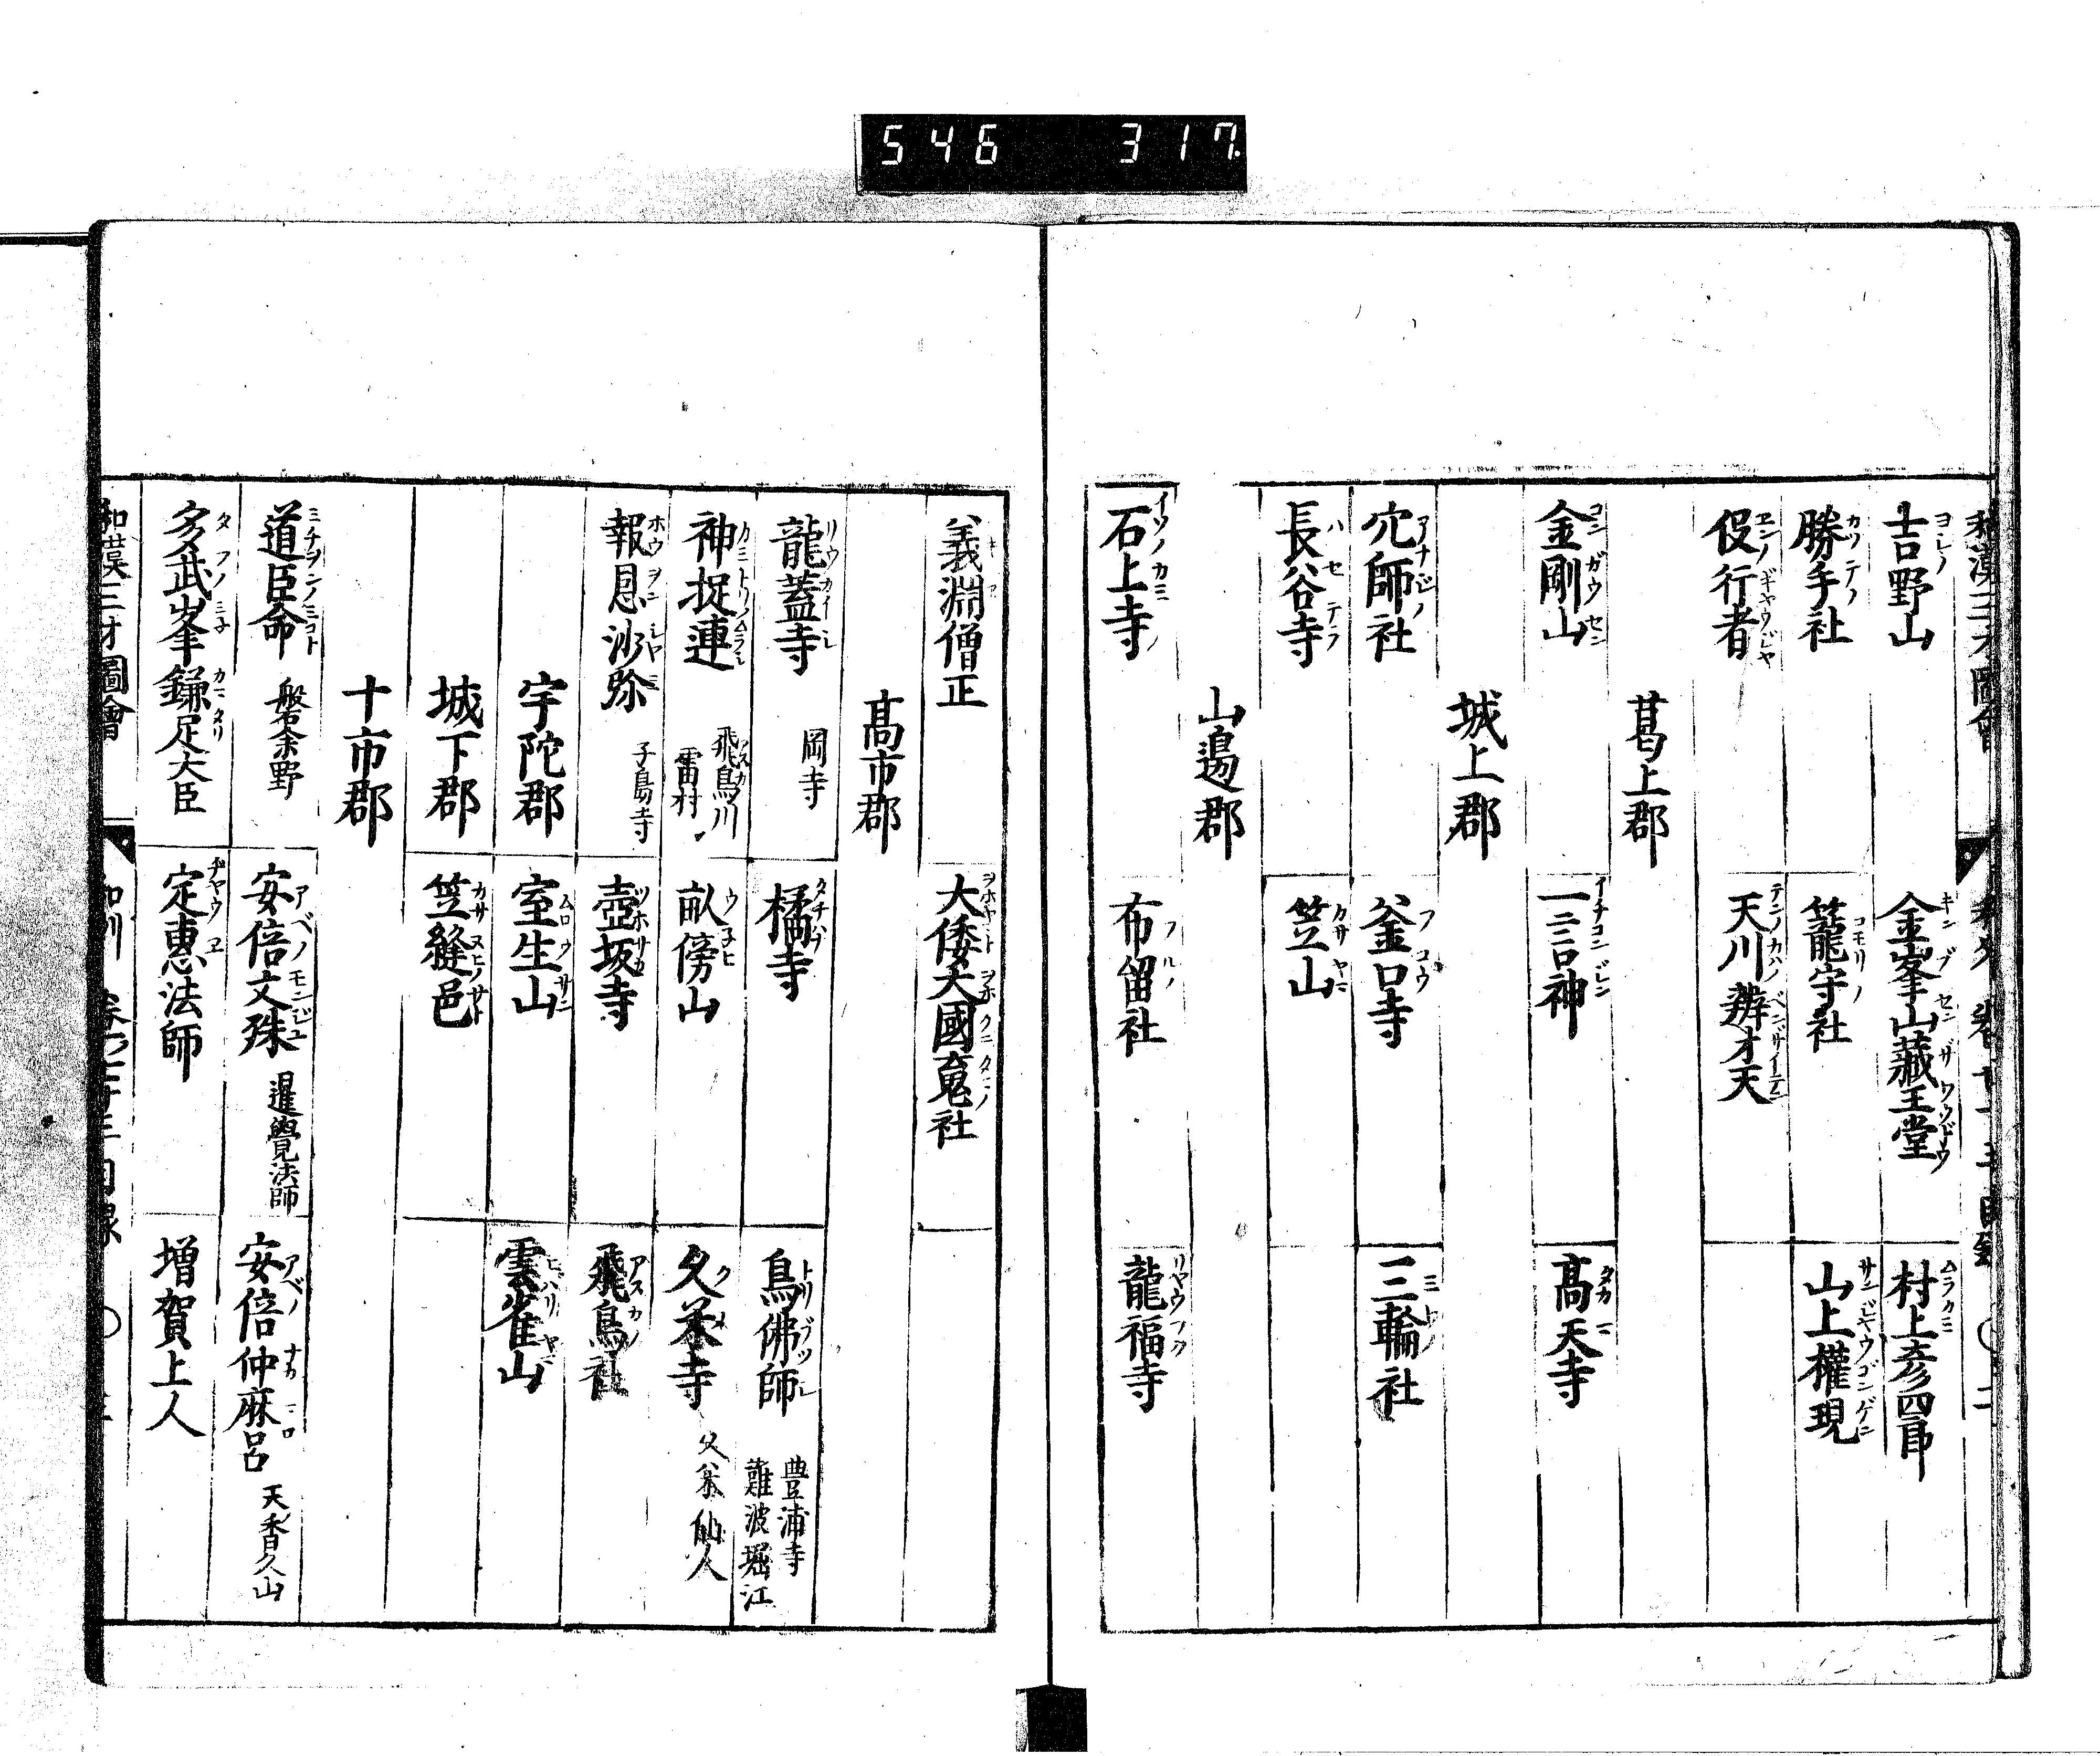 546 317
吉野山 金峯山藏王堂 村上彦四郎
勝手社 籠守社 山上權現
役行者 天川辨才天
葛上郡
金剛山 一言神 髙天寺
城上郡
穴師社 釜口寺 三輪社
長谷寺 笠山
山邉郡
石上寺 布留社 龍福寺
義淵僧正 大倭大國䰟社
髙市郡
龍蓋寺 岡寺 橘寺 鳥佛師 豊浦寺 難波堀江
神捉連 飛鳥川 雷村 畝傍山 久米寺 久米仙人
報恩沙弥 子島寺 壺坂寺 飛鳥社
宇陀郡 室生山 雲雀山
城下郡 笠縫邑
十市郡
道臣命 磐余野 安倍文殊 暹覺法師 安倍仲麻呂 天香久山
多武峯 鎌足大臣 定惠法師 増賀上人
和漢三才圖會